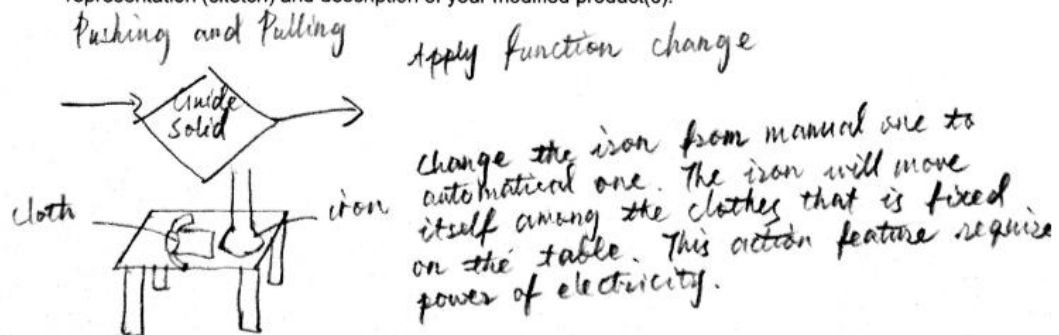 representation (sketch) and description of your modified product(s).
Pushing and Pulling
Apply function change
Guide
Solid
change the iron from manual one to
automatical one. The iron will move
itself among the clothes that is fixed
on the table. This action feature require
power of electricity.
cloth
iron